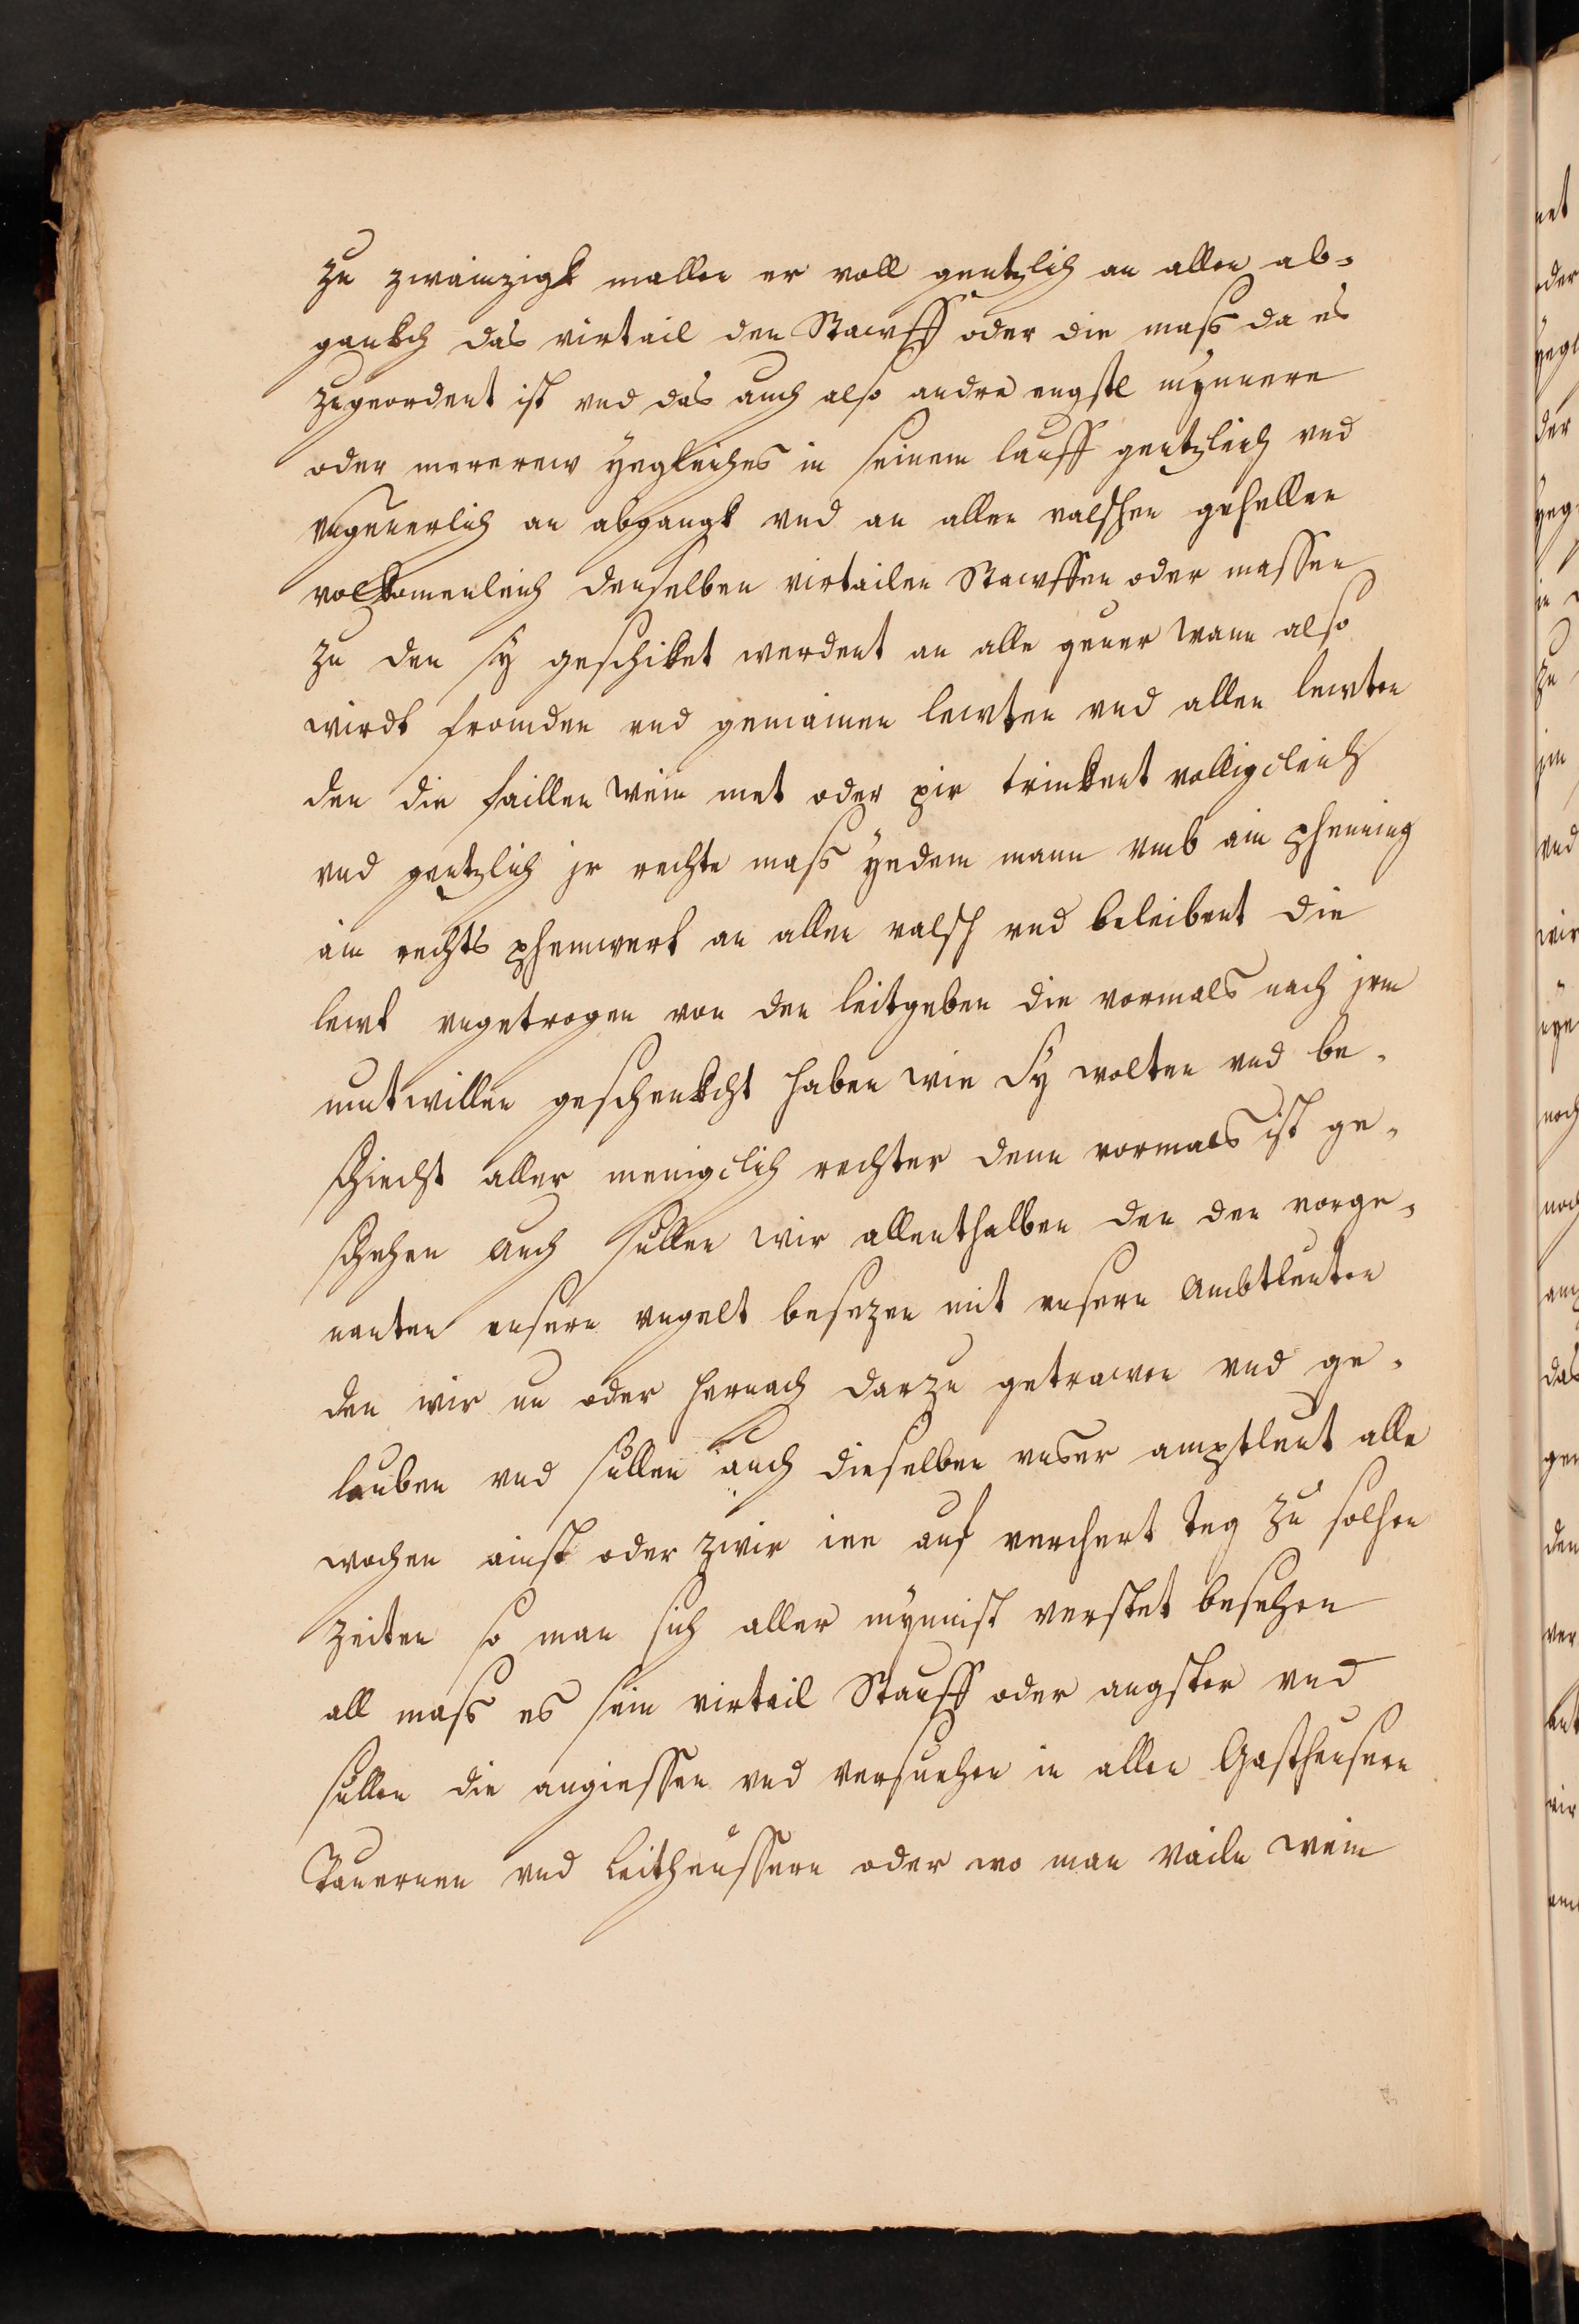 zu zwainzigk mallen er voll gentzlich an allen ab-
gankch das virtail den Stawff oder die mass da es
zugeordent ist vnd das auch also andre engstl mynnere
oder mererew yegleiches in seinem lauff gentzleich vnd
vngeuerlich an abgangk vnd an allen valschen gehellen
volkomenleich denselben virtailen Stawffen oder massen
zu den sy geschiket werdent an alle geuer wann also
wirdt fromden vnd gemainen lewten vnd allen lewten
den die faillen wein met oder pir trinkent volligcleich
vnd gentzlich jr rechte mass yedem mann vmb ain phenning
ain rechts phenwert an allen valsch vnd beleibent die
lewt vngetrogen von den leitgeben die vormals nach jrm
mutwillen geschenkcht haben wie Sy wolten vnd be-
schiecht aller menigclich rechter denn vormals ist ge-
schehen auch sullen wir allenthalben den den vorge-
nanten vnsern vngelt besezen mit vnsern Ambtleuten
den wir nu oder hernach darzu getrawen vnd ge-
lauben vnd sullen auch dieselben vnser amptleut alle
wochen ainst oder zwir ie auf verchert teg zu solhen
zeiten so man sich aller mynnist verstet besehen
all mass es sein virtail Stauff oder angster vnd
sullen die angiessen vnd versuchen in allen Gastheusern
Tauernen vnd Leitheussern oder wo man vailn wein